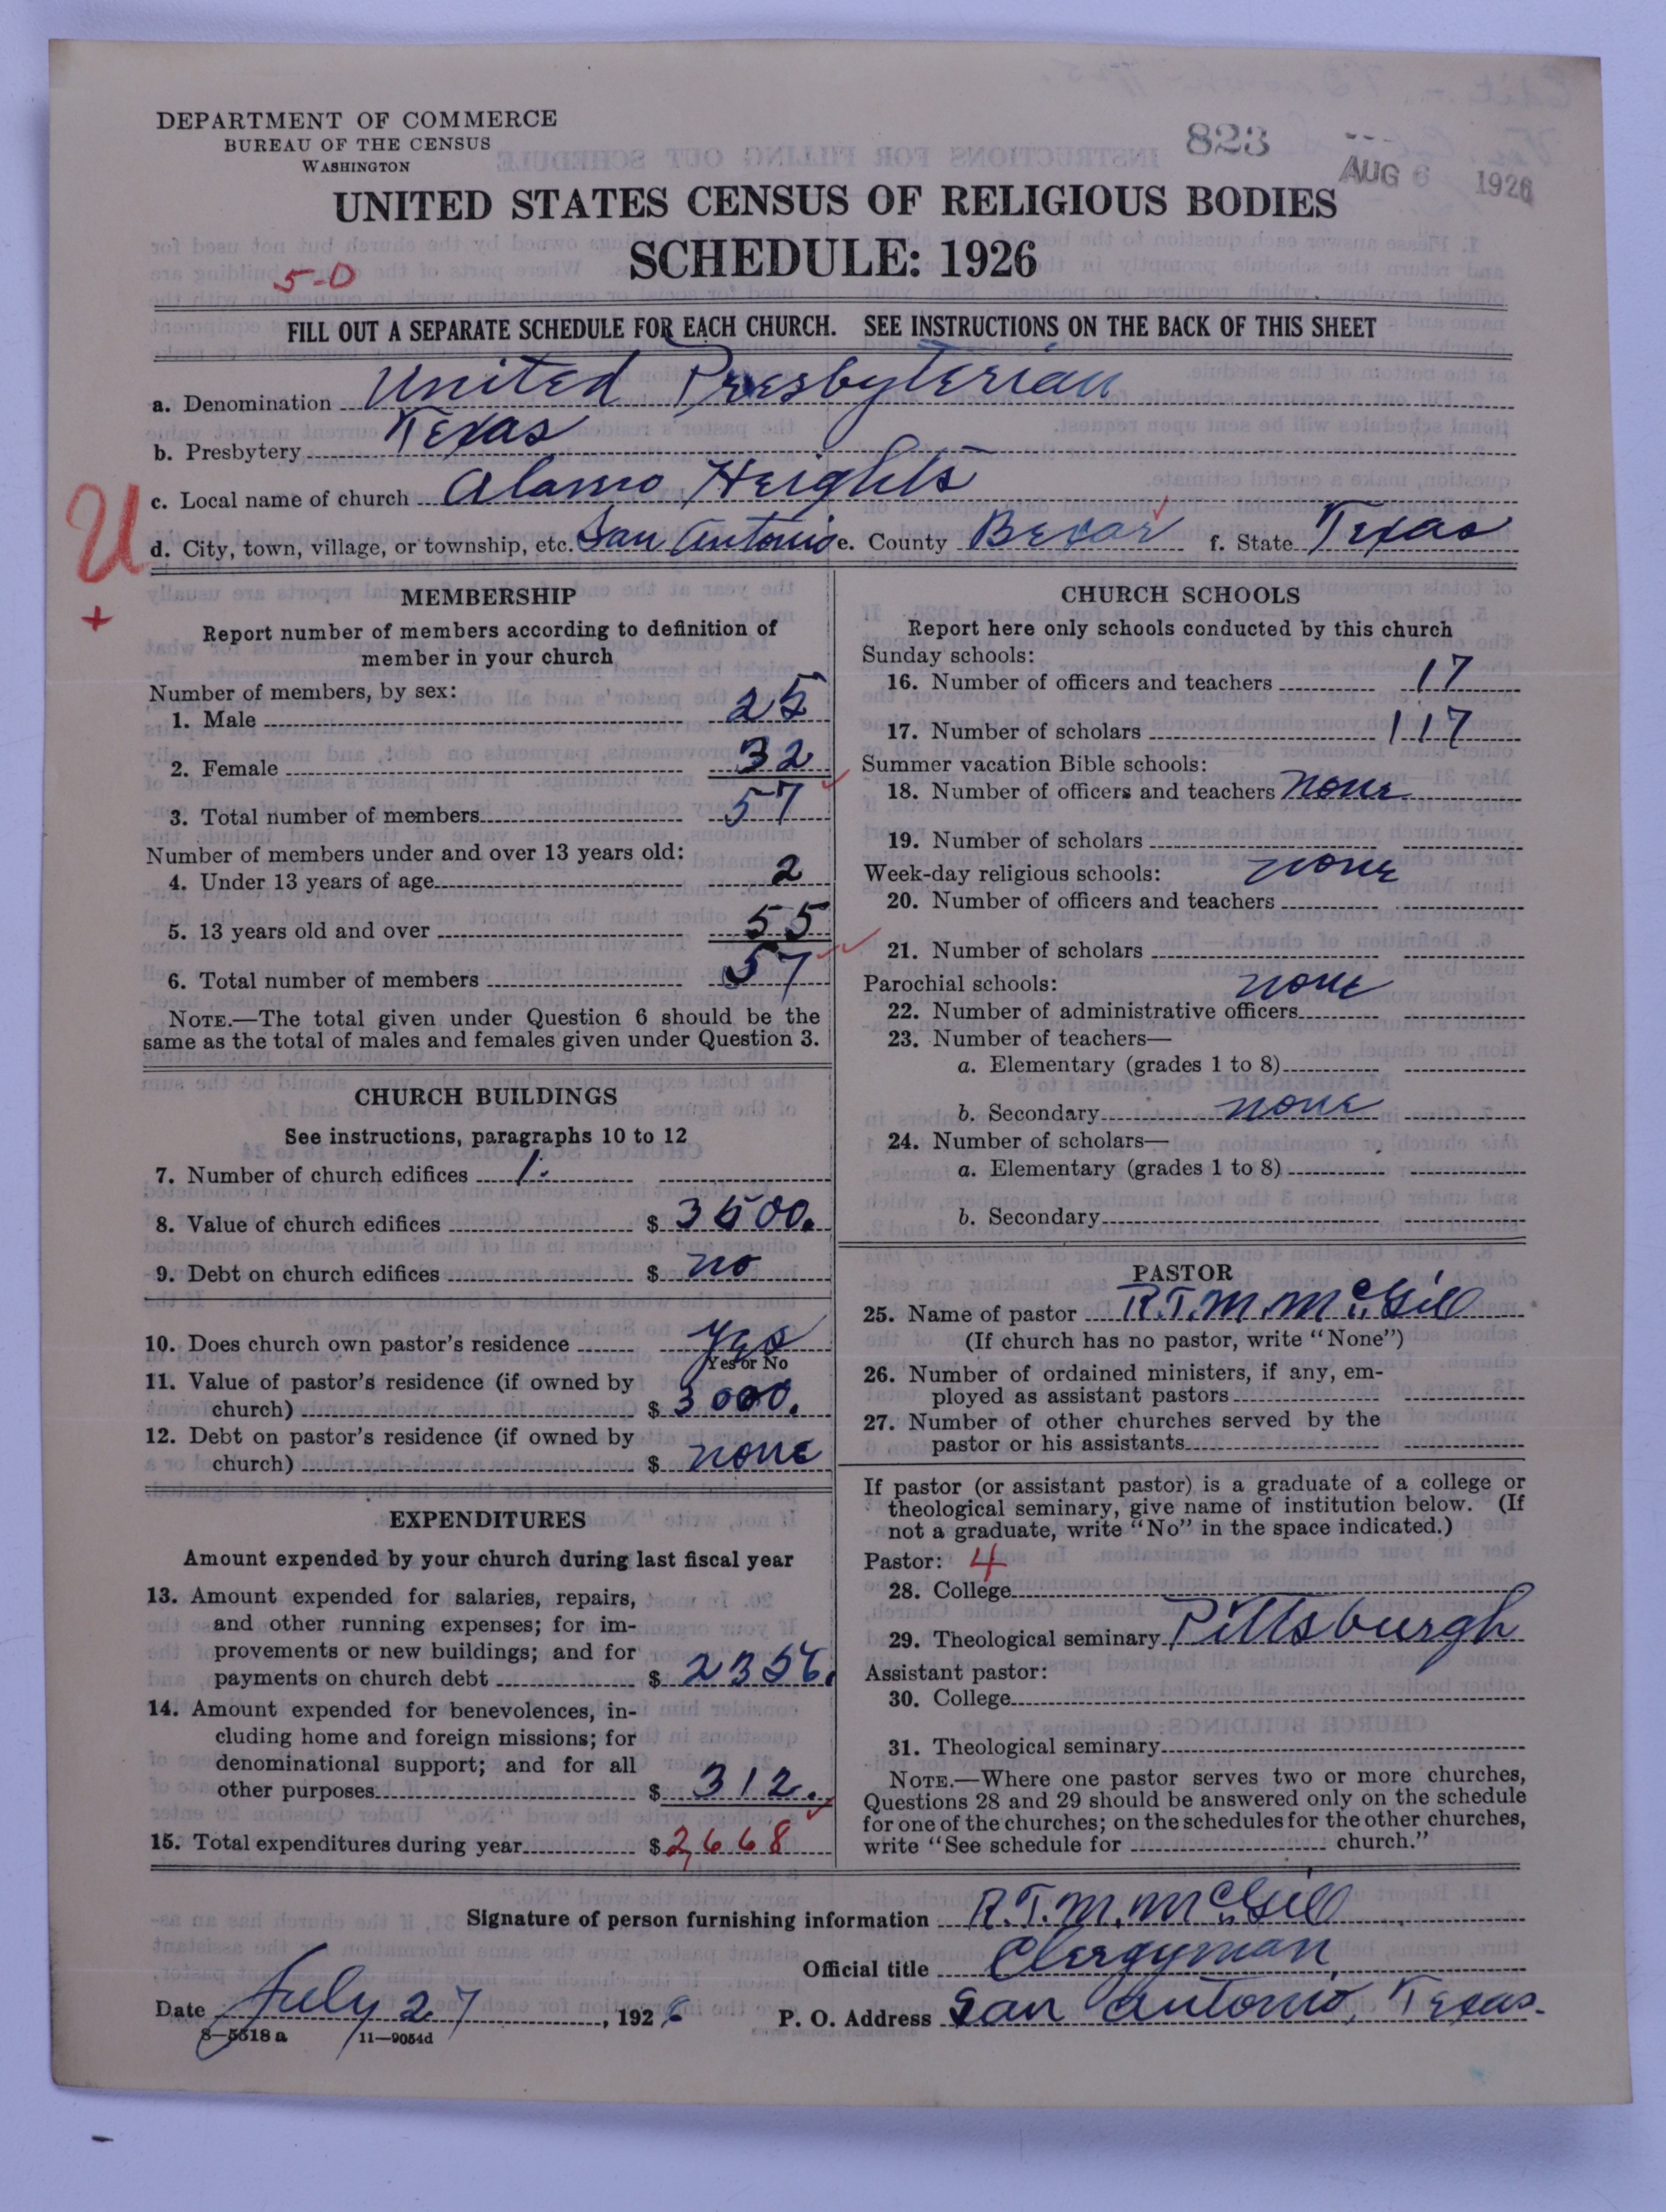 DEPARTMENT OF COMMERCE
BUREAU OF THE CENSUS
WASHINGTON
823
AUG 6 1926
UNITED STATES CENSUS OF RELIGIOUS BODIES
SCHEDULE: 1926
5-0
FILL OUT A SEPARATE SCHEDULE FOR EACH CHURCH. SEE INSTRUCTIONS ON THE BACK OF THIS SHEET
a. Denomination United Presbyterian
b. Presbytery Texas
c. Local name of church Alamo Heights
U
d. City, town, village, or township, etc. San Antonio e. County Bexar f. State Texas
+
MEMBERSHIP
Report number of members according to definition of
member in your church
Number of members, by sex:
1. Male 25
2. Female 32
3. Total number of members 57
Number of members under and over 13 years old:
4. Under 13 years of age 2
5. 13 years old and over 55
6. Total number of members 57
NOTE.—The total given under Question 6 should be the
same as the total of males and females given under Question 3.
CHURCH BUILDINGS
See instructions, paragraphs 10 to 12
7. Number of church edifices 1.
8. Value of church edifices $ 3500.
9. Debt on church edifices $ no
10. Does church own pastor's residence yes
Yes or No
11. Value of pastor's residence (if owned by
church) $ 3000.
12. Debt on pastor's residence (if owned by
church) $ none
EXPENDITURES
Amount expended by your church during last fiscal year
13. Amount expended for salaries, repairs,
and other running expenses; for im-
provements or new buildings; and for
payments on church debt $ 2356.
14. Amount expended for benevolences, in-
cluding home and foreign missions; for
denominational support; and for all
other purposes $ 312.
15. Total expenditures during year $ 2,668
CHURCH SCHOOLS
Report here only schools conducted by this church
Sunday schools:
16. Number of officers and teachers 17
17. Number of scholars 117
Summer vacation Bible schools:
18. Number of officers and teachers none
19. Number of scholars
Week-day religious schools: none
20. Number of officers and teachers
21. Number of scholars
Parochial schools: none
22. Number of administrative officers
23. Number of teachers—
a. Elementary (grades 1 to 8)
b. Secondary none
24. Number of scholars—
a. Elementary (grades 1 to 8)
b. Secondary
PASTOR
25. Name of pastor R.T.M. McGill
(If church has no pastor, write "None")
26. Number of ordained ministers, if any, em-
ployed as assistant pastors
27. Number of other churches served by the
pastor or his assistants
If pastor (or assistant pastor) is a graduate of a college or
theological seminary, give name of institution below. (If
not a graduate, write "No" in the space indicated.)
Pastor: 4
28. College
29. Theological seminary Pittsburgh
Assistant pastor:
30. College
31. Theological seminary
NOTE.—Where one pastor serves two or more churches,
Questions 28 and 29 should be answered only on the schedule
for one of the churches; on the schedules for the other churches,
write "See schedule for church."
Signature of person furnishing information R.T.M. McGill
Official title Clergyman
Date July 27, 1926 P. O. Address San Antonio, Texas.
8—5518 a 11—9054d